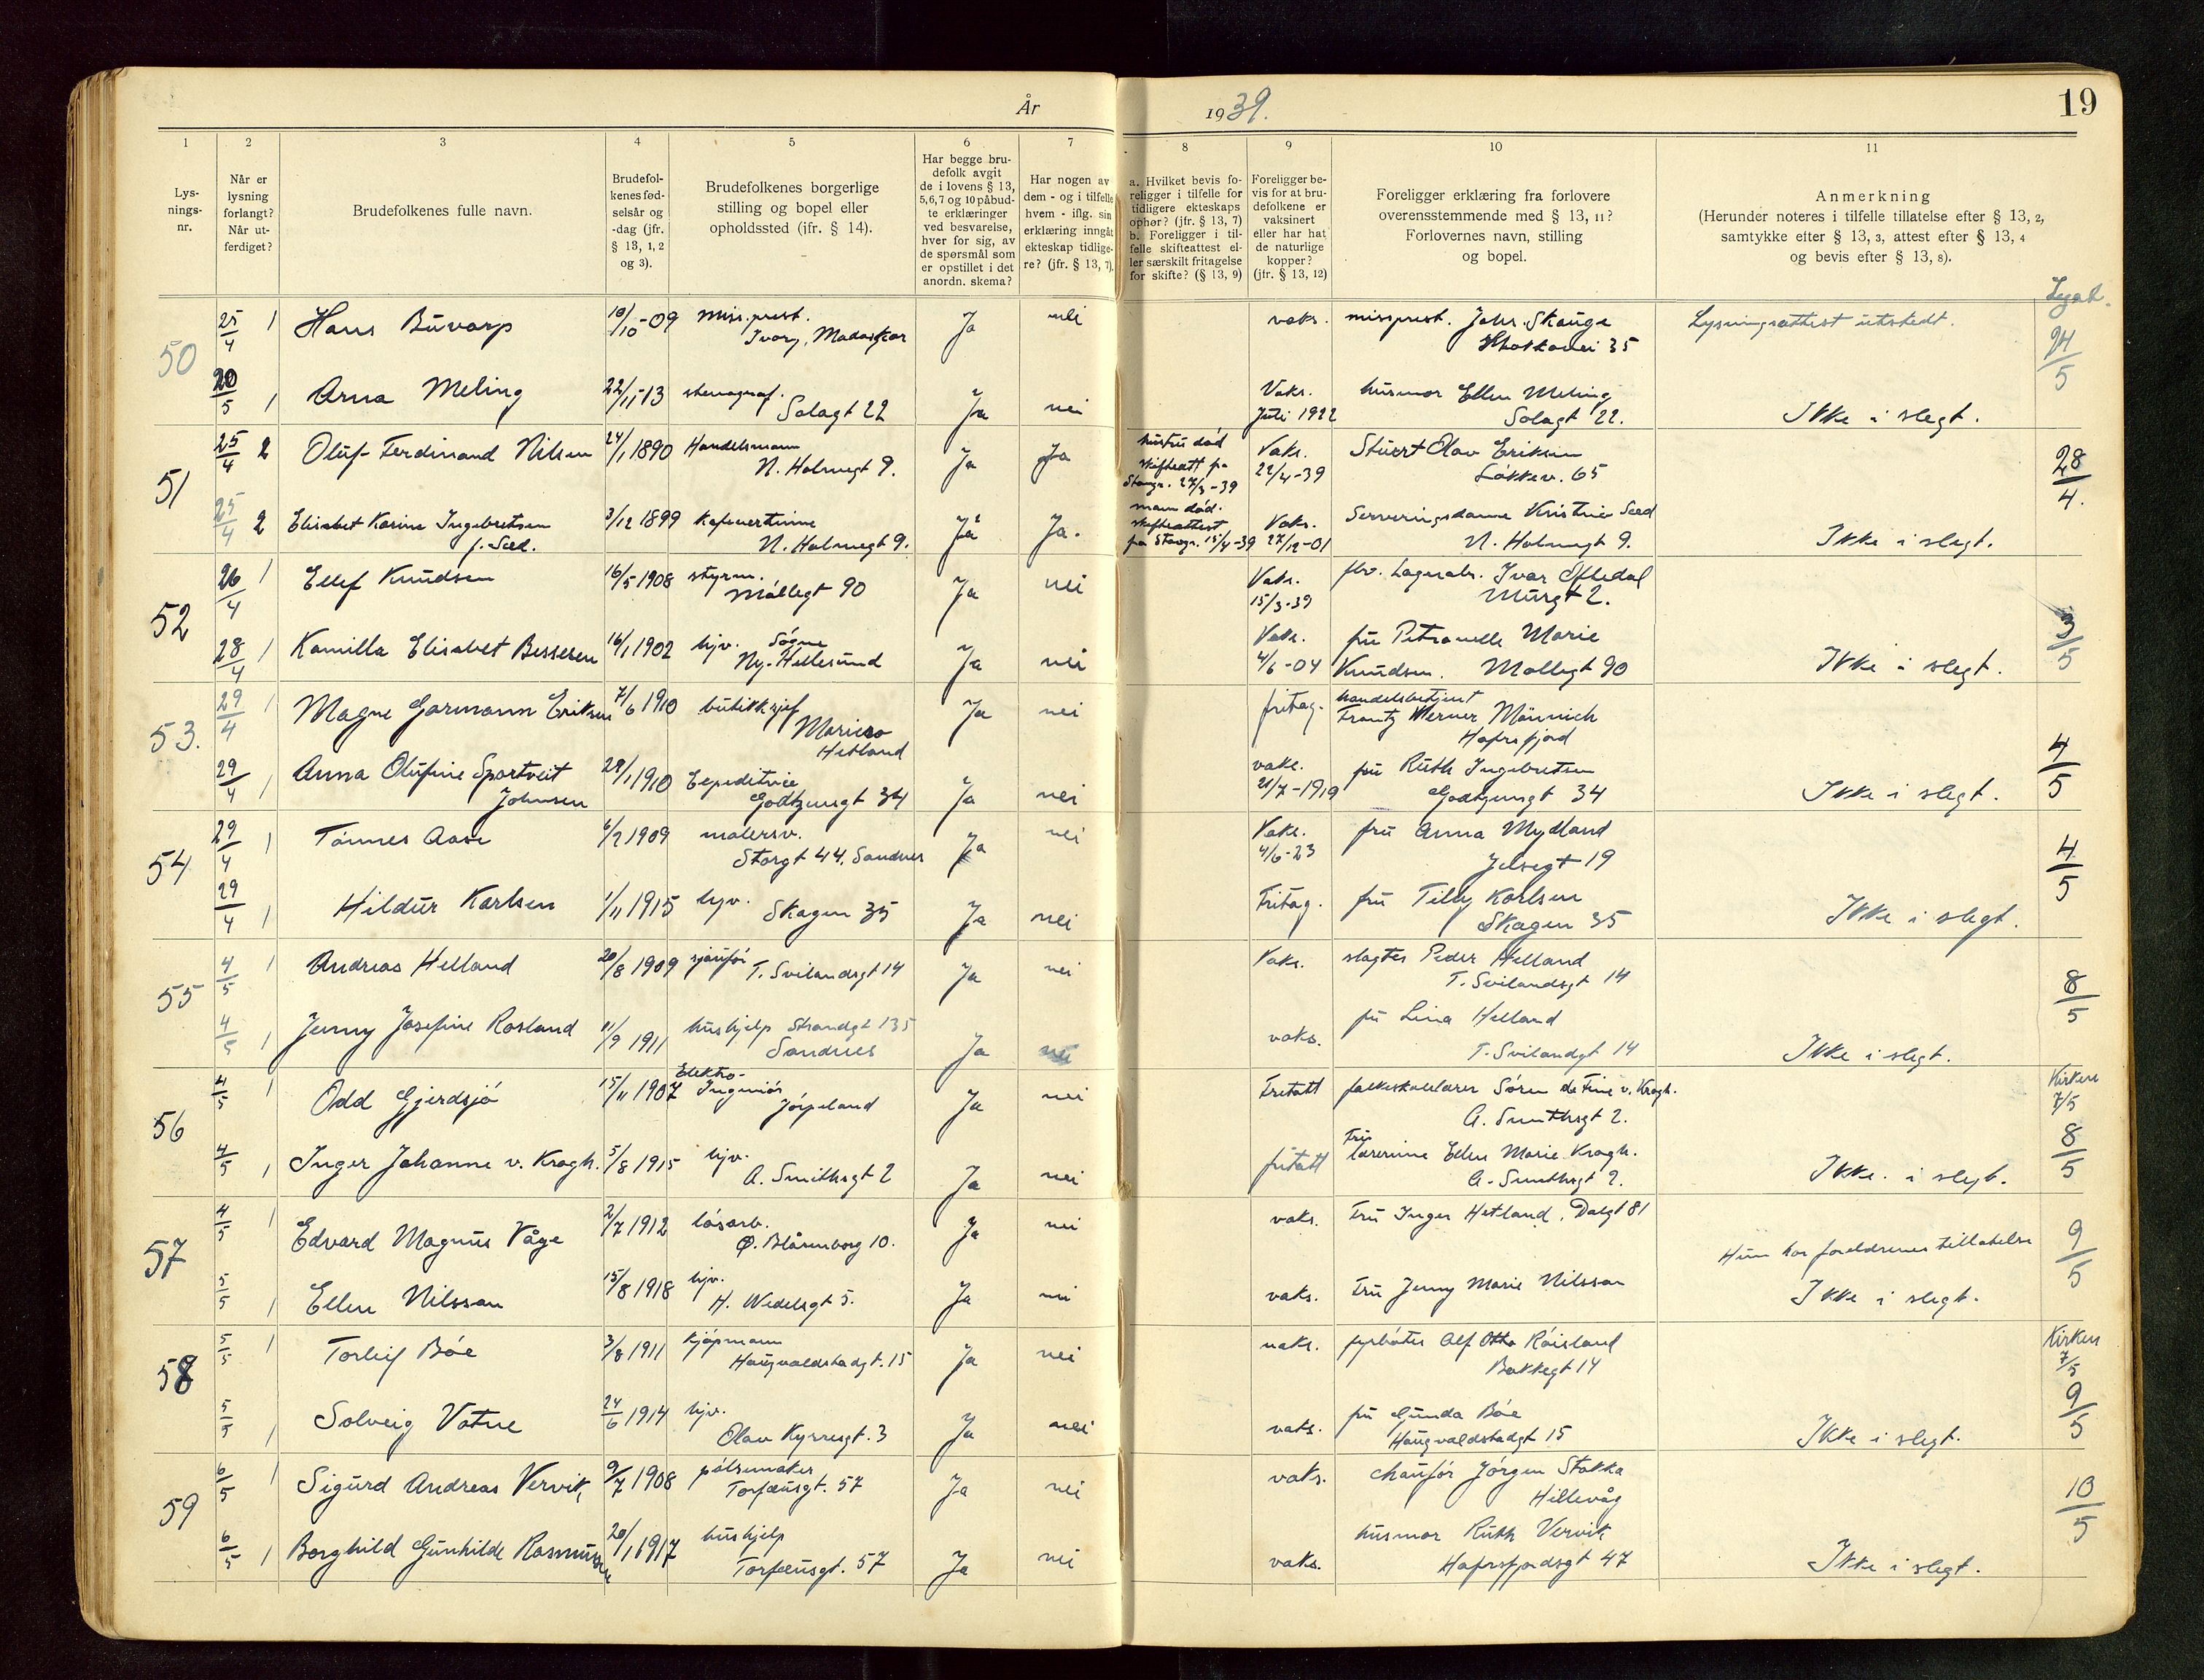 År 1939.
19
1 2 3 4 5 6 7 8 9 10 11
Lys-
nings-
nr.
Når er
lysning
forlangt?
Når ut-
ferdiget?
Brudefolkenes fulle navn.
Brudefol-
kenes fød-
selsår og
-dag (jfr.
§ 13, 1, 2
og 3).
Brudefolkenes borgerlige
stilling og bopel eller
opholdssted (jfr. § 14).
Har begge bru-
defolk avgit
de i lovens § 13,
5,6,7 og 10 påbud-
te erklæringer
ved besvarelse,
hver for sig, av
de spørsmål som
er opstillet i det
anordn. skema?
Har nogen av
dem - og i tilfelle
hvem - iflg. sin
erklæring inngåt
ekteskap tidlige-
re? (jfr. § 13, 7).
a. Hvilket bevis fo-
religger i tilfelle for
tidligere ekteskaps
ophør? (jfr. § 13, 7)
b. Foreligger i til-
felle skifteattest el-
ler særskilt fritagelse
for skifte? (§ 13, 9)
Foreligger be-
vis for at bru-
defolkene er
vaksinert
eller har hat
de naturlige
kopper?
(jfr. § 13, 12)
Foreligger erklæring fra forlovere
overensstemmende med § 13, 11?
Forlovernes navn, stilling
og bopel.
Anmerkning
(Herunder noteres i tilfelle tillatelse efter § 13, 2,
samtykke efter § 13, 3, attest efter § 13, 4
og bevis efter § 13, 8).
50
25/4 1 Hans Buvarp 10/10-09 miss.prest. Ja nei vaks. missprest. Johs. Skauge Lysningsattest utstedt. 24/5
Ivory, Madaskar 35
20/5 1 Arna Meling 22/11-13 stenograf. Ja nei Vaks. husmor Ellen Meling
Solagt 22 Juli 1922 Solagt 22. Ikke i slegt.
51
25/4 2 Oluf Ferdinand Nilsen 24/1 1890 Handelsmann Ja Ja hustru død Vaks. Stuert Olav Eriksen 28/4.
N. Holmegt 9. skifteatt fra 22/4-39 Løkkev. 65
Stavgr. 27/3-39
25/4 2 Elisabet Karine Ingebretsen 3/12 1899 Kafevertinne Ja Ja. mann død. Vaks. Serveringsdame Kristine Sæd
f. Sæd. N. Holmegt 9. skifteattest 27/12-01 N. Holmegt 9. Ikke i slegt.
fra Stavgr. 15/4-39
52
26/4 1 Ellef Knudsen 16/5 1908 styrm. Ja nei Vaks. fhv. Lagerarb. Ivar Oftedal 3/5
Møllegt 90 15/3-39 Murgt 2.
28/4 1 Kamilla Elisabet Bessesen 16/1 1902 hjv. Søgne Ja nei Vaks. fru Petronelle Marie
Ny-Hellesund 4/6-04 Knudsen. Møllegt 90 Ikke i slegt.
53.
29/4 1 Magne Garmann Eriksen 7/6 1910 butikksjef Ja nei fritag. handelsbetjent
Mariero Frantz Werner Männich
Hetland Hafrsfjord
29/4 1 Anna Olufine Sportveit 29/1 1910 Expeditrice Ja nei vaks. fru Ruth Ingebretsen 4/5
Johnsen Godtzensgt 34 21/7-1919 Godtzensgt 34 Ikke i slegt.
54
29/4 1 Tønnes Aase 6/2 1909 malersv. Ja nei Vaks. fru Anna Mydland 4/5
Storgt 44. Sandnes 4/6-23 Jelsegt 19
29/4 1 Hildur Karlsen 1/11 1915 hjv. Skagen 35 Ja nei Fritag. fru Tilly Karlsen
Skagen 35 Ikke i slegt.
55
4/5 1 Andreas Helland 20/8 1909 sjåufør T. Svilandsgt 14 Ja nei Vaks. slagter Peder Helland 8/5
T. Svilandsgt 14
4/5 1 Jenny Josefine Rosland 11/9 1911 hushjelp Strandgt 135 Ja nei vaks. fru Lina Helland
Sandnes T. Svilandgt 14 Ikke i slegt.
56
4/5 1 Odd Gjerdsjø 15/11 1907 Elektro- Ja nei Fritatt folkeskolelærer Søren de Fine v. Krogh. Kirken 7/5
Ingeniør Jørpeland A. Smithsgt 2.
4/5 1 Inger Johanne v. Krogh. 5/8 1915 hjv. Ja nei fritatt Fru lærerinne Ellen Marie Krogh. 8/5
A. Smithsgt 2 A. Smithsgt 2. Ikke i slegt.
57
4/5 1 Edvard Magnus Våge 2/7 1912 løsarb. Ja nei vaks. Fru Inger Hetland, Dalgt 81 9/5
Ø. Blåsenborg 10. Hun har foreldrenes tillatelse
5/5 1 Ellen Nilssen 15/8 1918 hjv. Ja nei vaks. Fru Jenny Marie Nilssen
H. Wedelsgt 5. Ikke i slegt.
58
5/5 1 Torleif Bøe 3/8 1911 kjøpmann Ja nei vaks. fyrbøter Alf Otto Røisland Kirken 7/5
Haugvaldstadgt. 15 Bakkegt 14
5/5 1 Solveig Vatne 24/6 1914 hjv. Ja nei vaks. fru Gunda Bøe 9/5
Olav Kyrresgt. 3 Haugvaldstadgt 15 Ikke i slegt.
59
6/5 1 Sigurd Andreas Vervik 9/7 1908 pølsemaker Ja nei vaks. chaufør Jørgen Stokka 10/5
Torfæusgt. 57 Hillevåg
6/5 1 Borghild Gunhilde Rasmussen 20/1 1917 hushjelp Ja nei vaks. husmor Ruth Vervik
Torfæusgt. 57 Hafrsfjordsgt 47 Ikke i slegt.